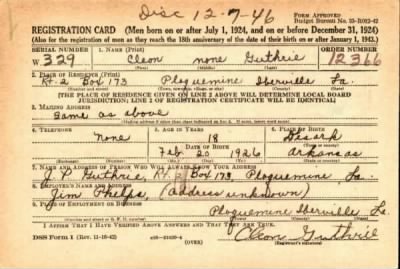 Disc 12-7-46
FORM APPROVED
Budget Bureau No. 33-R012-42
REGISTRATION CARD (Men born on or after July 1, 1924, and on or before December 31, 1924)
(Also for the registration of men as they reach the 18th anniversary of the date of their birth on or after January 1, 1943.)
SERIAL NUMBER 1. NAME (Print) ORDER NUMBER
W 329 Cleon none Guthrie 12366
2. PLACE OF RESIDENCE (Print)
Rt. 2 Box 173 Plaquemine Iberville La.
[THE PLACE OF RESIDENCE GIVEN ON LINE 2 ABOVE WILL DETERMINE LOCAL BOARD
JURISDICTION; LINE 2 OF REGISTRATION CERTIFICATE WILL BE IDENTICAL]
3. MAILING ADDRESS
same as above
4. TELEPHONE 5. AGE IN YEARS 6. PLACE OF BIRTH
none 18 Desark
DATE OF BIRTH
Feb 20 1926 Arkansas
7. NAME AND ADDRESS OF PERSON WHO WILL ALWAYS KNOW YOUR ADDRESS
J. P. Guthrie, Rt. 2 Box 173, Plaquemine La.
8. EMPLOYER'S NAME AND ADDRESS
Jim Phelps, (address unknown)
9. PLACE OF EMPLOYMENT OR BUSINESS
Plaquemine Iberville La.
I AFFIRM THAT I HAVE VERIFIED ABOVE ANSWERS AND THAT THEY ARE TRUE.
DSS Form 1 (Rev. 11-16-42) (OVER) Cleon Guthrie
(Registrant's signature)